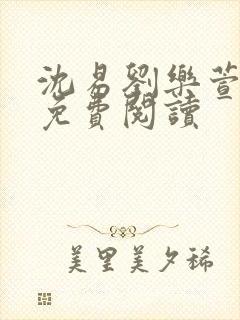 沈易劉樂萱
免費閱讀
美里美夕稀